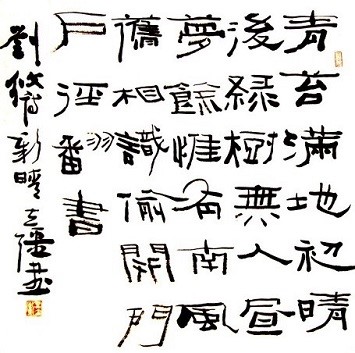 青苔滿地初晴
後綠樹無人昼
夢餘惟有南風
舊相識偷開門
戶徑翻書
劉攽新晴